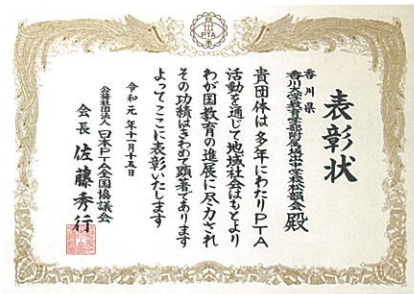 日
PTA
表彰状
香川県
香川大学教育学部附属坂出中学校松韻会 殿
貴団体は多年にわたりPTA
活動を通じて地域社会はもとより
わが国教育の進展に尽力され
その功績はきわめて顕著であります
よってここに表彰いたします
令和元年十一月十五日
公益社団法人 日本PTA全国協議会
会長 佐藤秀行